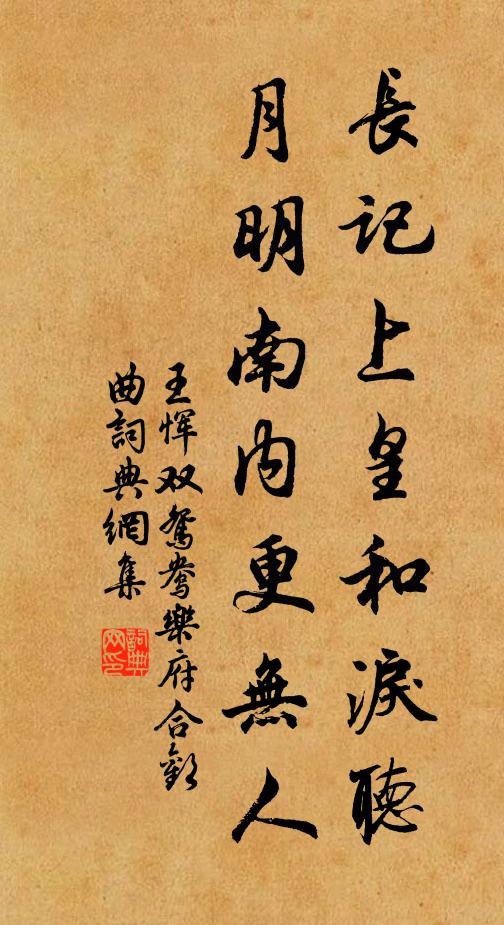 長記上皇和淚聽
月明南內更無人
王惲双鴛鴦樂府合歡
曲詞典網集
詞典网印